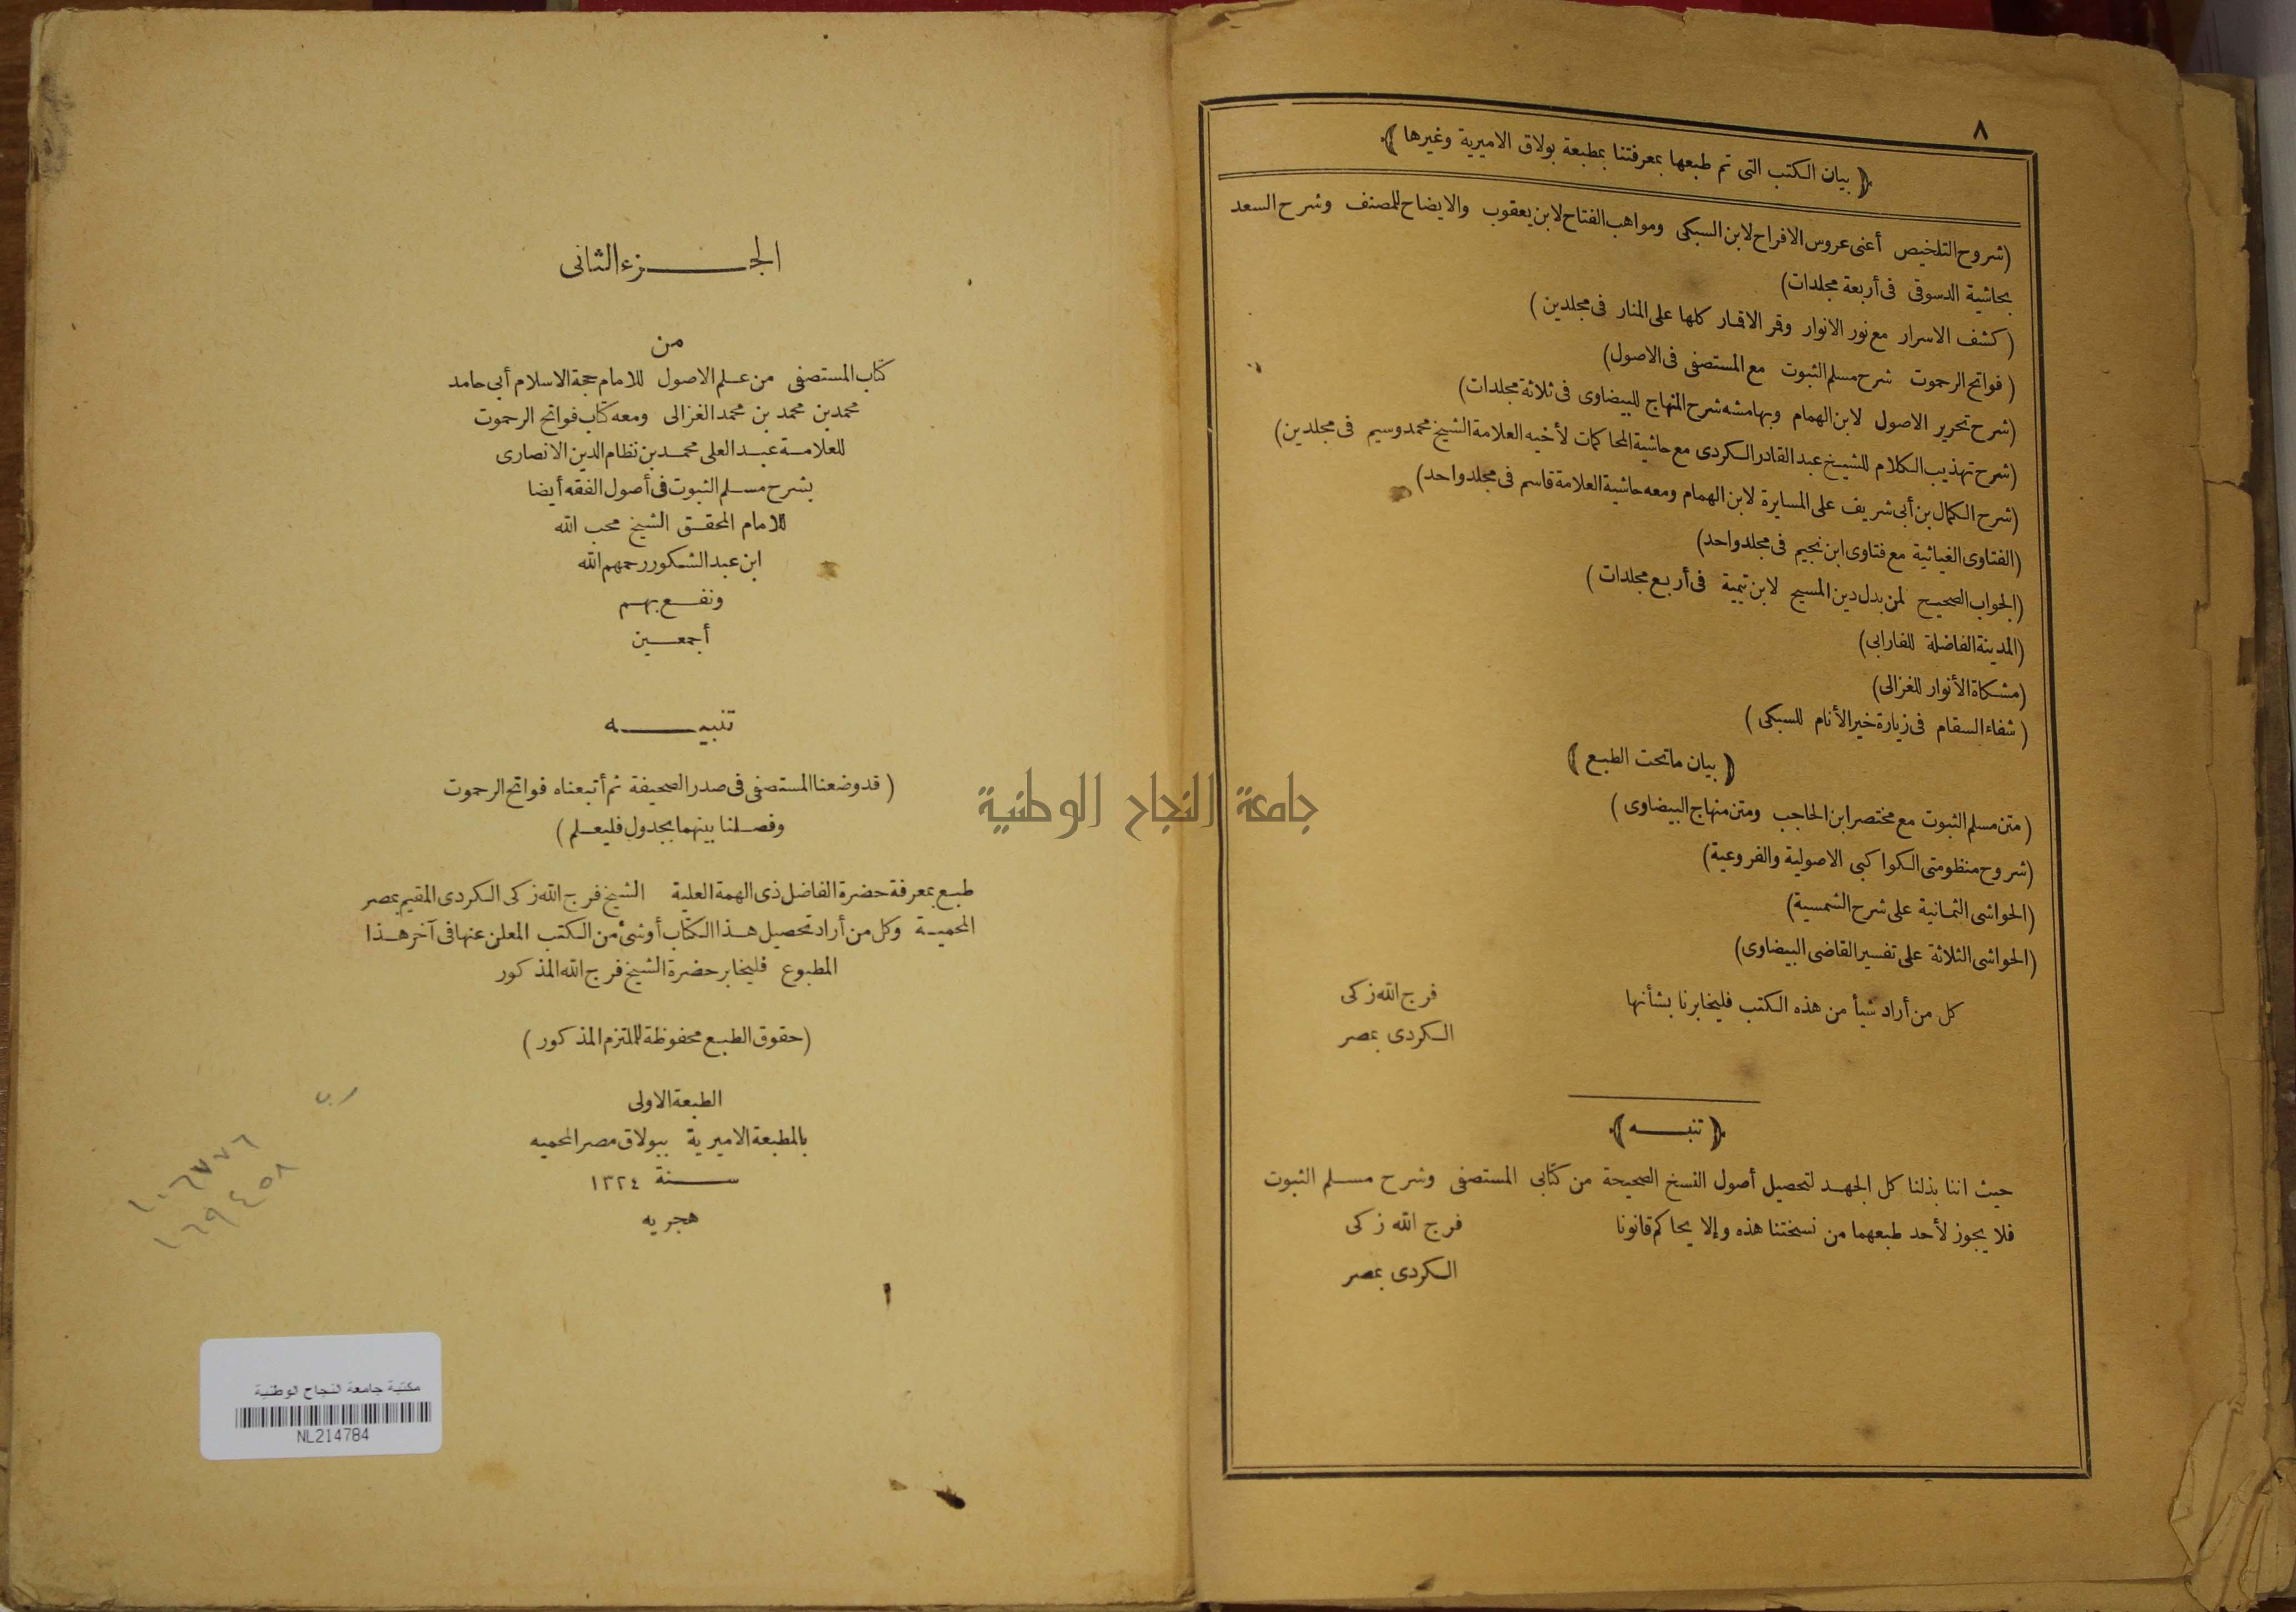 ٨
﴿ بيان الكتب التى تم طبعها بمعرفتنا بمطبعة بولاق الاميرية وغيرها ﴾
(شروح التلخيص أعنى عروس الافراح لابن السبكى ومواهب الفتاح لابن يعقوب والايضاح للمصنف وشرح السعد
بحاشية الدسوقى فى أربعة مجلدات)
(كشف الاسرار مع نور الانوار وقر الاقمار كلها على المنار فى مجلدين)
(فواتح الرحموت شرح مسلم الثبوت مع المستصفى فى الاصول)
(شرح تحرير الاصول لابن الهمام وبهامشه شرح المنهاج للبيضاوى فى ثلاثة مجلدات)
(شرح تهذيب الكلام للشيخ عبد القادر الكردى مع حاشية المحاكمات لأخيه العلامة الشيخ محمد وسيم فى مجلدين)
(شرح الكمال بن أبى شريف على المسايرة لابن الهمام ومعه حاشية العلامة قاسم فى مجلد واحد)
(الفتاوى الغياثية مع فتاوى ابن نجيم فى مجلد واحد)
(الجواب الصحيح لمن بدل دين المسيح لابن تيمية فى أربع مجلدات)
(المدينة الفاضلة للفارابى)
(مشكاة الأنوار للغزالى)
(شفاء السقام فى زيارة خير الأنام للسبكى)
﴿ بيان ما تحت الطبع ﴾
(متن مسلم الثبوت مع مختصر ابن الحاجب ومتن منهاج البيضاوى)
(شروح منظومتى الكواكبى الاصولية والفروعية)
(الحواشى الثمانية على شرح الشمسية)
(الحواشى الثلاثة على تفسير القاضى البيضاوى)
كل من أراد شيأ من هذه الكتب فليخابرنا بشأنها
فرج الله زكى
الكردى بمصر
﴿ تنبيه ﴾
حيث اننا بذلنا كل الجهد لتحصيل أصول النسخ الصحيحة من كتابى المستصفى وشرح مسلم الثبوت
فلا يجوز لأحد طبعهما من نسختنا هذه وإلا يحاكم قانونا
فرج الله زكى
الكردى بمصر
الجزء الثانى
من
كتاب المستصفى من علم الاصول للامام حجة الاسلام أبى حامد
محمد بن محمد بن محمد الغزالى ومعه كتاب فواتح الرحموت
للعلامة عبد العلى محمد بن نظام الدين الانصارى
بشرح مسلم الثبوت فى أصول الفقه أيضا
للامام المحقق الشيخ محب الله
ابن عبد الشكور رحمهم الله
ونفع بهم
أجمعين
تنبيه
(قد وضعنا المستصفى فى صدر الصحيفة ثم أتبعناه فواتح الرحموت
وفصلنا بينهما بجدول فليعلم)
طبع بمعرفة حضرة الفاضل ذى الهمة العلية الشيخ فرج الله زكى الكردى المقيم بمصر
المحمية وكل من أراد تحصيل هذا الكتاب أو شئ من الكتب المعلن عنها فى آخر هذا
المطبوع فليخابر حضرة الشيخ فرج الله المذكور
(حقوق الطبع محفوظة للملتزم المذكور)
الطبعة الاولى
بالمطبعة الاميرية ببولاق مصر المحميه
سنة ١٣٢٤
هجريه
١٠٦٧٧٦
١٦٩٤٥٨
مكتبة جامعة النجاح الوطنية
NL214784
جامعة النجاح الوطنية